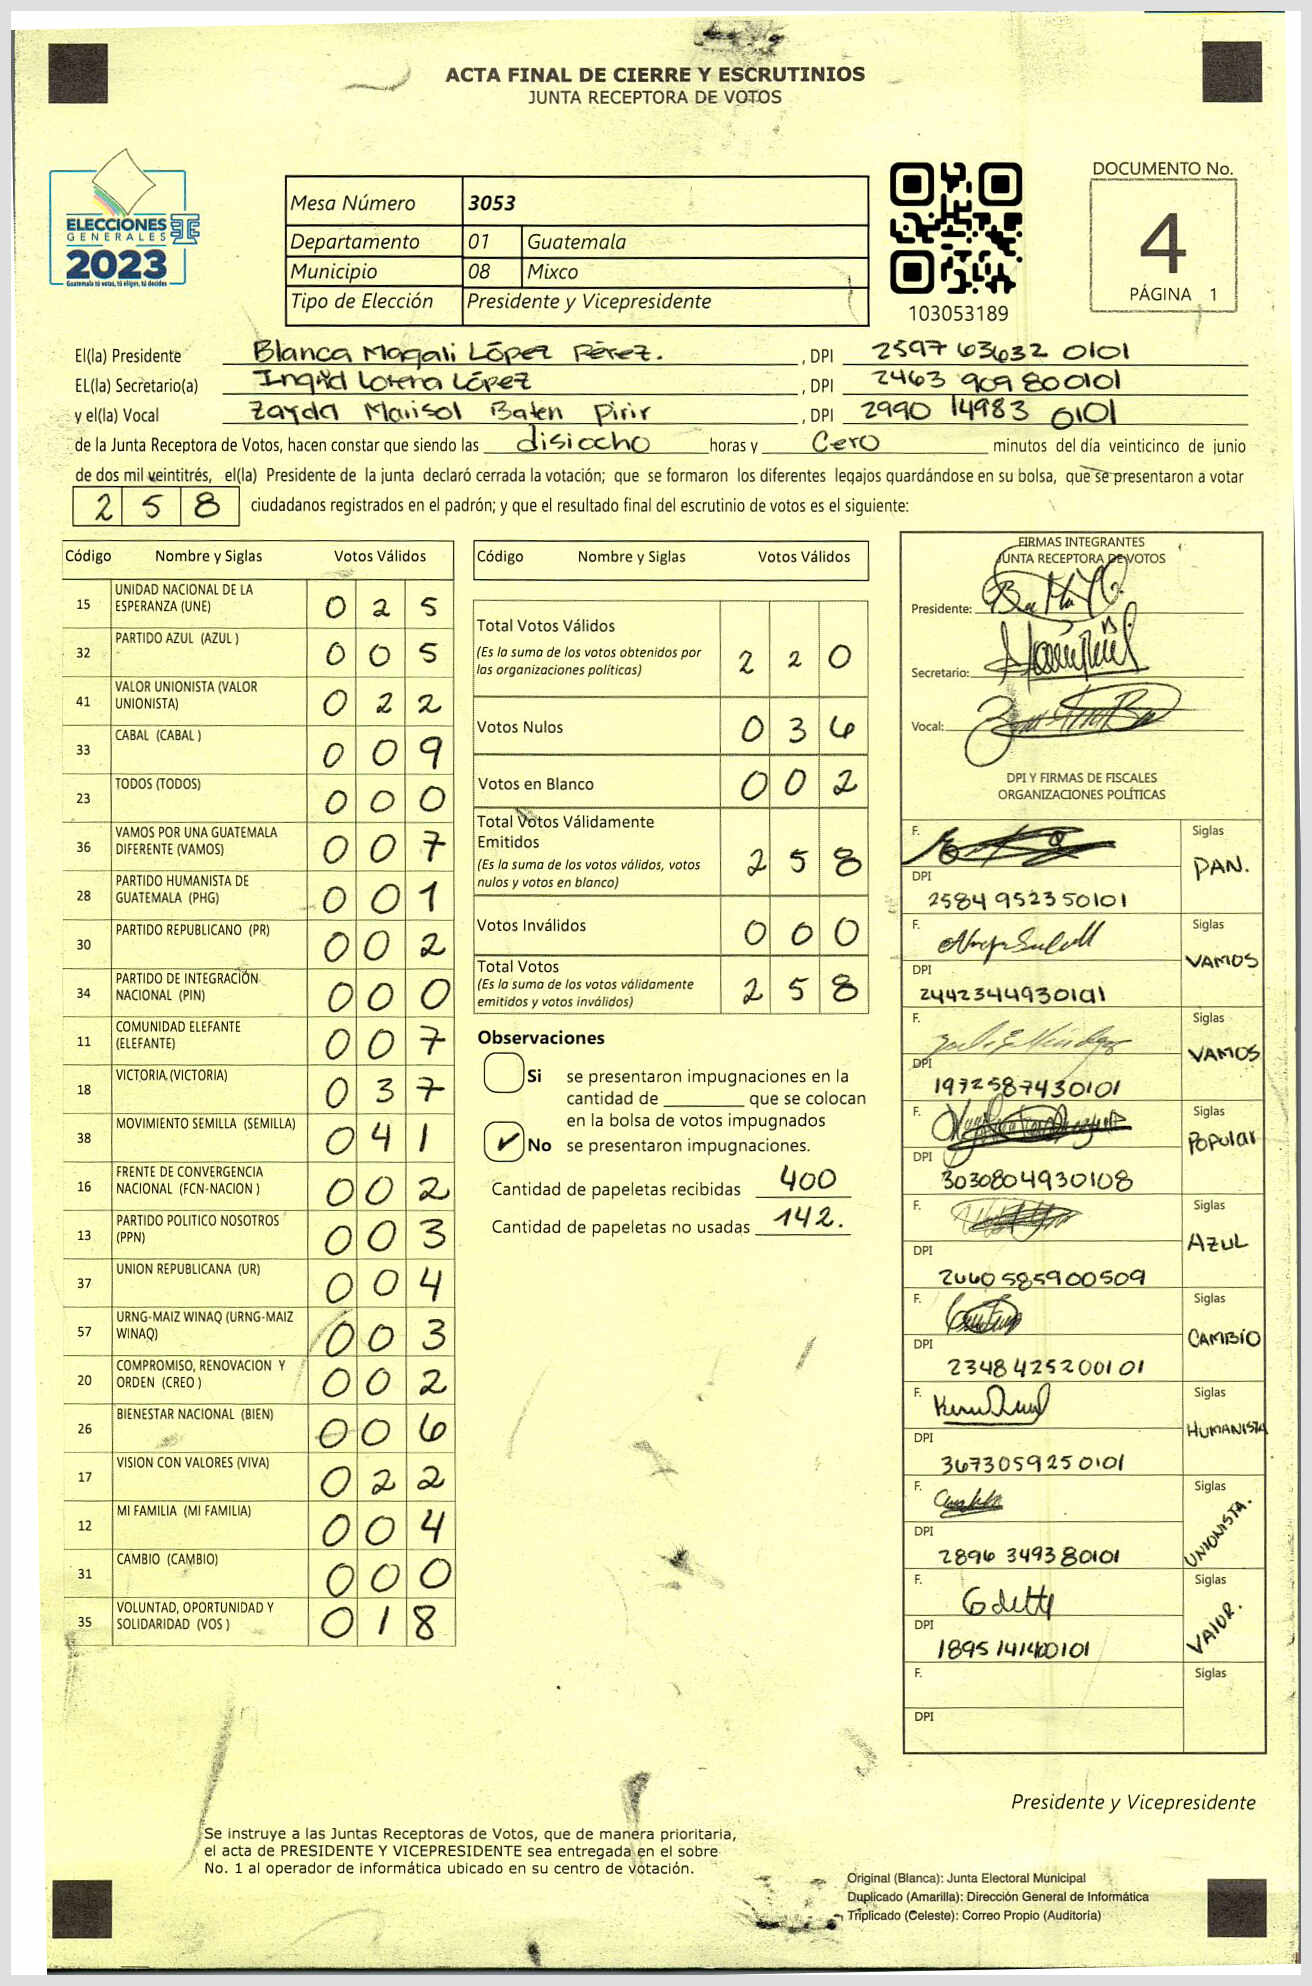 ACTA FINAL DE CIERRE Y ESCRUTINIOS
JUNTA RECEPTORA DE VOTOS
ELECCIONES
GENERALES
2023
Guatemala tú votas, tú eliges, tú decides
Mesa Número 3053
Departamento 01 Guatemala
Municipio 08 Mixco
Tipo de Elección Presidente y Vicepresidente
103053189
DOCUMENTO No.
4
PÁGINA 1
El(la) Presidente Blanca Magali López Pérez. , DPI 2597 63632 0101
EL(la) Secretario(a) Ingrid Lorena López , DPI 2463 909800101
y el(la) Vocal Zayda Marisol Baten Pirir , DPI 2990 14983 0101
de la Junta Receptora de Votos, hacen constar que siendo las disiocho horas y Cero minutos del día veinticinco de junio
de dos mil veintitrés, el(la) Presidente de la junta declaró cerrada la votación; que se formaron los diferentes legajos guardándose en su bolsa, que se presentaron a votar
258 ciudadanos registrados en el padrón; y que el resultado final del escrutinio de votos es el siguiente:
Código Nombre y Siglas Votos Válidos
15 UNIDAD NACIONAL DE LA ESPERANZA (UNE) 025
32 PARTIDO AZUL (AZUL ) 005
41 VALOR UNIONISTA (VALOR UNIONISTA) 022
33 CABAL (CABAL ) 009
23 TODOS (TODOS) 000
36 VAMOS POR UNA GUATEMALA DIFERENTE (VAMOS) 007
28 PARTIDO HUMANISTA DE GUATEMALA (PHG) 001
30 PARTIDO REPUBLICANO (PR) 002
34 PARTIDO DE INTEGRACIÓN NACIONAL (PIN) 000
11 COMUNIDAD ELEFANTE (ELEFANTE) 007
18 VICTORIA (VICTORIA) 037
38 MOVIMIENTO SEMILLA (SEMILLA) 041
16 FRENTE DE CONVERGENCIA NACIONAL (FCN-NACION ) 002
13 PARTIDO POLITICO NOSOTROS (PPN) 003
37 UNION REPUBLICANA (UR) 004
57 URNG-MAIZ WINAQ (URNG-MAIZ WINAQ) 003
20 COMPROMISO, RENOVACION Y ORDEN (CREO ) 002
26 BIENESTAR NACIONAL (BIEN) 006
17 VISION CON VALORES (VIVA) 022
12 MI FAMILIA (MI FAMILIA) 004
31 CAMBIO (CAMBIO) 000
35 VOLUNTAD, OPORTUNIDAD Y SOLIDARIDAD (VOS ) 018
Código Nombre y Siglas Votos Válidos
Total Votos Válidos
(Es la suma de los votos obtenidos por las organizaciones políticas) 220
Votos Nulos 036
Votos en Blanco 002
Total Votos Válidamente Emitidos
(Es la suma de los votos válidos, votos nulos y votos en blanco) 258
Votos Inválidos 000
Total Votos
(Es la suma de los votos válidamente emitidos y votos inválidos) 258
Observaciones
Si se presentaron impugnaciones en la
cantidad de ________ que se colocan
en la bolsa de votos impugnados
✓ No se presentaron impugnaciones.
Cantidad de papeletas recibidas 400
Cantidad de papeletas no usadas 142.
FIRMAS INTEGRANTES
JUNTA RECEPTORA DE VOTOS
Presidente:
Secretario:
Vocal:
DPI Y FIRMAS DE FISCALES
ORGANIZACIONES POLÍTICAS
F. Siglas PAN.
DPI 2584 952350101
F. Siglas VAMOS
DPI 2442344930101
F. Siglas VAMOS
DPI 1972587430101
F. Siglas Popular
DPI 3030804930108
F. Siglas AZUL
DPI 2660585900509
F. Siglas CAMBIO
DPI 2348425200101
F. Siglas HUMANISTA
DPI 3673059250101
F. Siglas UNIONISTA.
DPI 2896 349380101
F. Odetty Siglas VALOR.
DPI 1895141400101
F. Siglas
DPI
Presidente y Vicepresidente
Se instruye a las Juntas Receptoras de Votos, que de manera prioritaria,
el acta de PRESIDENTE Y VICEPRESIDENTE sea entregada en el sobre
No. 1 al operador de informática ubicado en su centro de votación.
Original (Blanca): Junta Electoral Municipal
Duplicado (Amarilla): Dirección General de Informática
Triplicado (Celeste): Correo Propio (Auditoría)